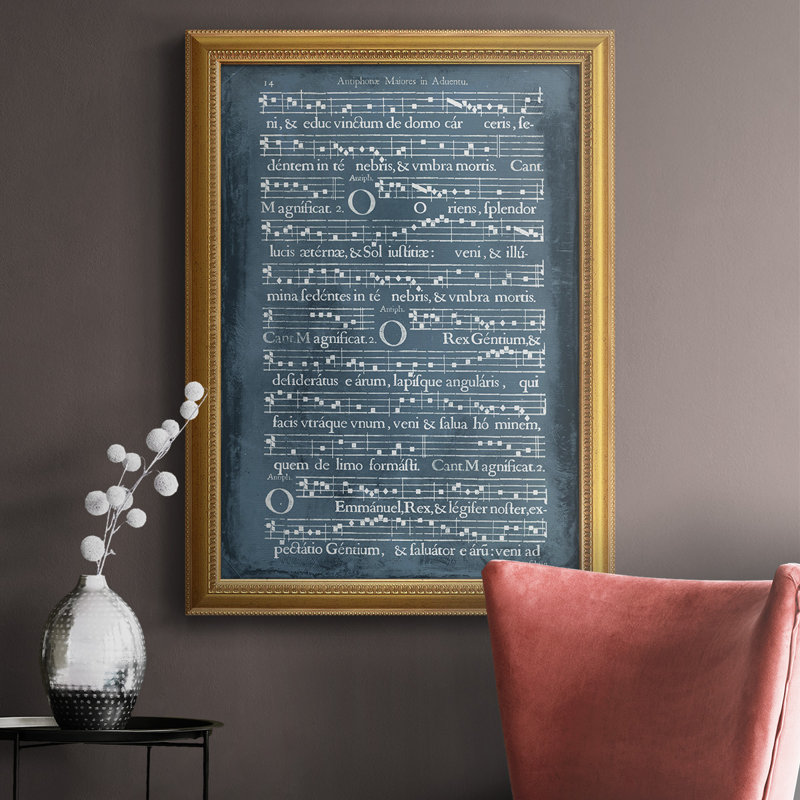 14 Antiphonæ Maiores in Aduentu.
ni, & educ vinctum de domo cár ceris, ſe-
déntem in té nebris, & vmbra mortis. Cant.
Antiph.
Magníficat. 2. O O riens, ſplendor
lucis ætérnæ, & Sol iuſtítiæ: veni, & illú-
mina ſedéntes in té nebris, & vmbra mortis.
Antiph.
Cant. Magníficat. 2. O Rex Géntium, &
deſiderátus eárum, lapíſque anguláris, qui
facis vtráque vnum, veni & ſalua hó minem,
quem de limo formáſti. Cant. Magníficat. 2.
Antiph.
O Emmánuel, Rex, & légifer noſter, ex-
pectátio Géntium, & ſaluátor eárū: veni ad